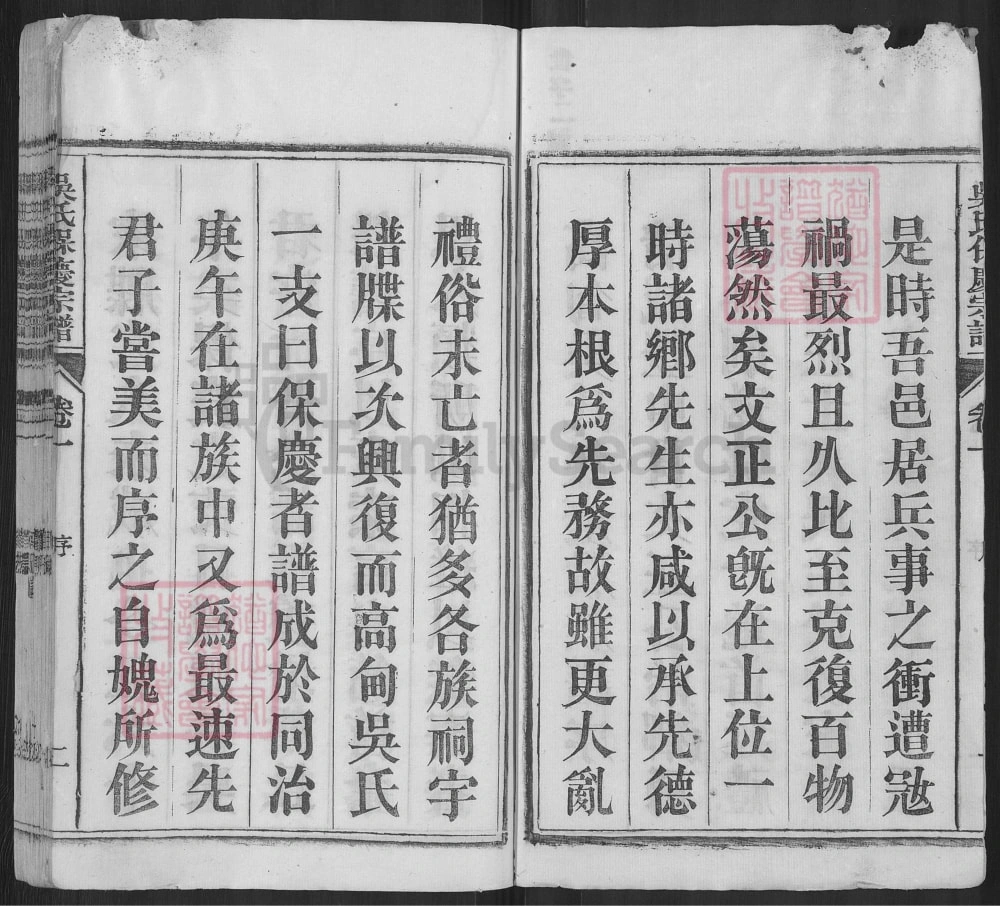 是時吾邑居兵事之衝遭冦
禍最烈且乆比至克復百物
蕩然矣文正公旣在上位一
時諸鄉先生亦咸以承先德
厚本根爲先務故雖更大亂
禮俗未亡者猶多各族祠宇
譜牒以次興復而高甸吳氏
一支曰保慶者譜成於同治
庚午在諸族中又爲最速先
君子嘗美而序之自媿所修
吳氏保慶宗譜
卷一
序
二
FamilySearch